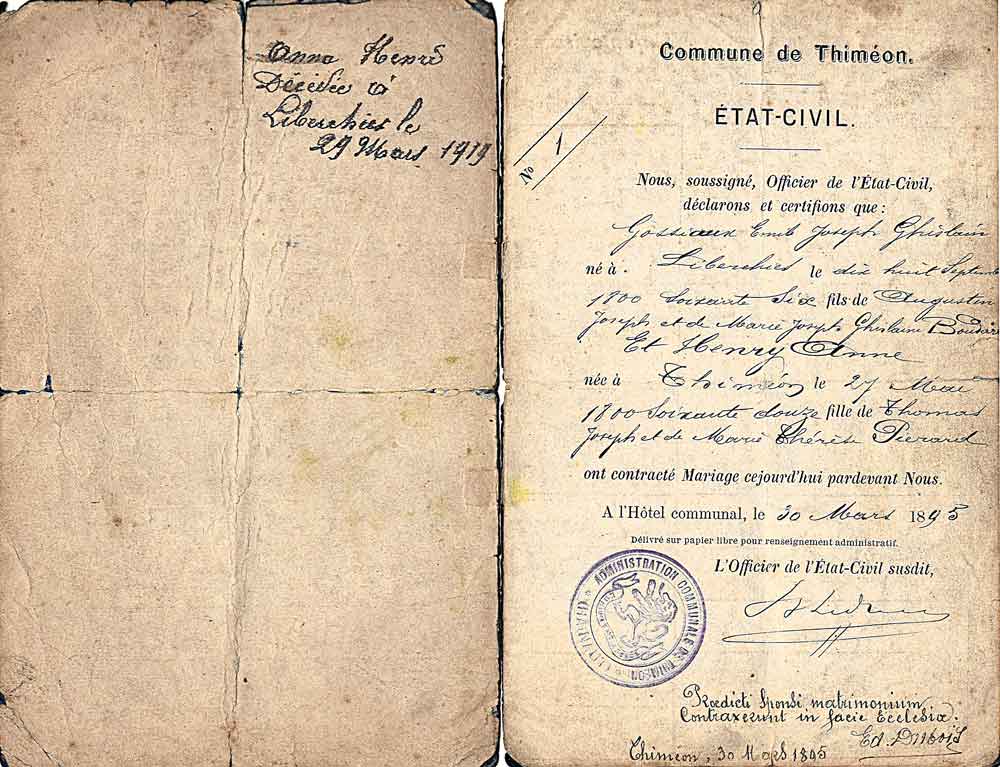 Anna Henri
Décédée à
Liberchies le
29 Mars 1919
Commune de Thiméon.
ÉTAT-CIVIL.
No 1
Nous, soussigné, Officier de l'État-Civil,
déclarons et certifions que :
Gossiaux Emile Joseph Ghislain
né à Liberchies le dix huit Septemb
1800 Soixante Six fils de Augustin
Joseph et de Marie Joseph Ghislaine
Et Henry Anne
née à Thiméon le 27 Mai
1800 Soixante douze fille de Thomas
Joseph et de Marie Thérèse Pierard
ont contracté Mariage cejourd'hui pardevant Nous.
A l'Hôtel communal, le 30 Mars 1895
Délivré sur papier libre pour renseignement administratif.
L'Officier de l'État-Civil susdit,
ADMINISTRATION COMMUNALE DE THIMÉON
Praedicti Sponsi matrimonium
Contraxerunt in facie Ecclesiæ.
Ed. Dubois
Thiméon, 30 Mars 1895